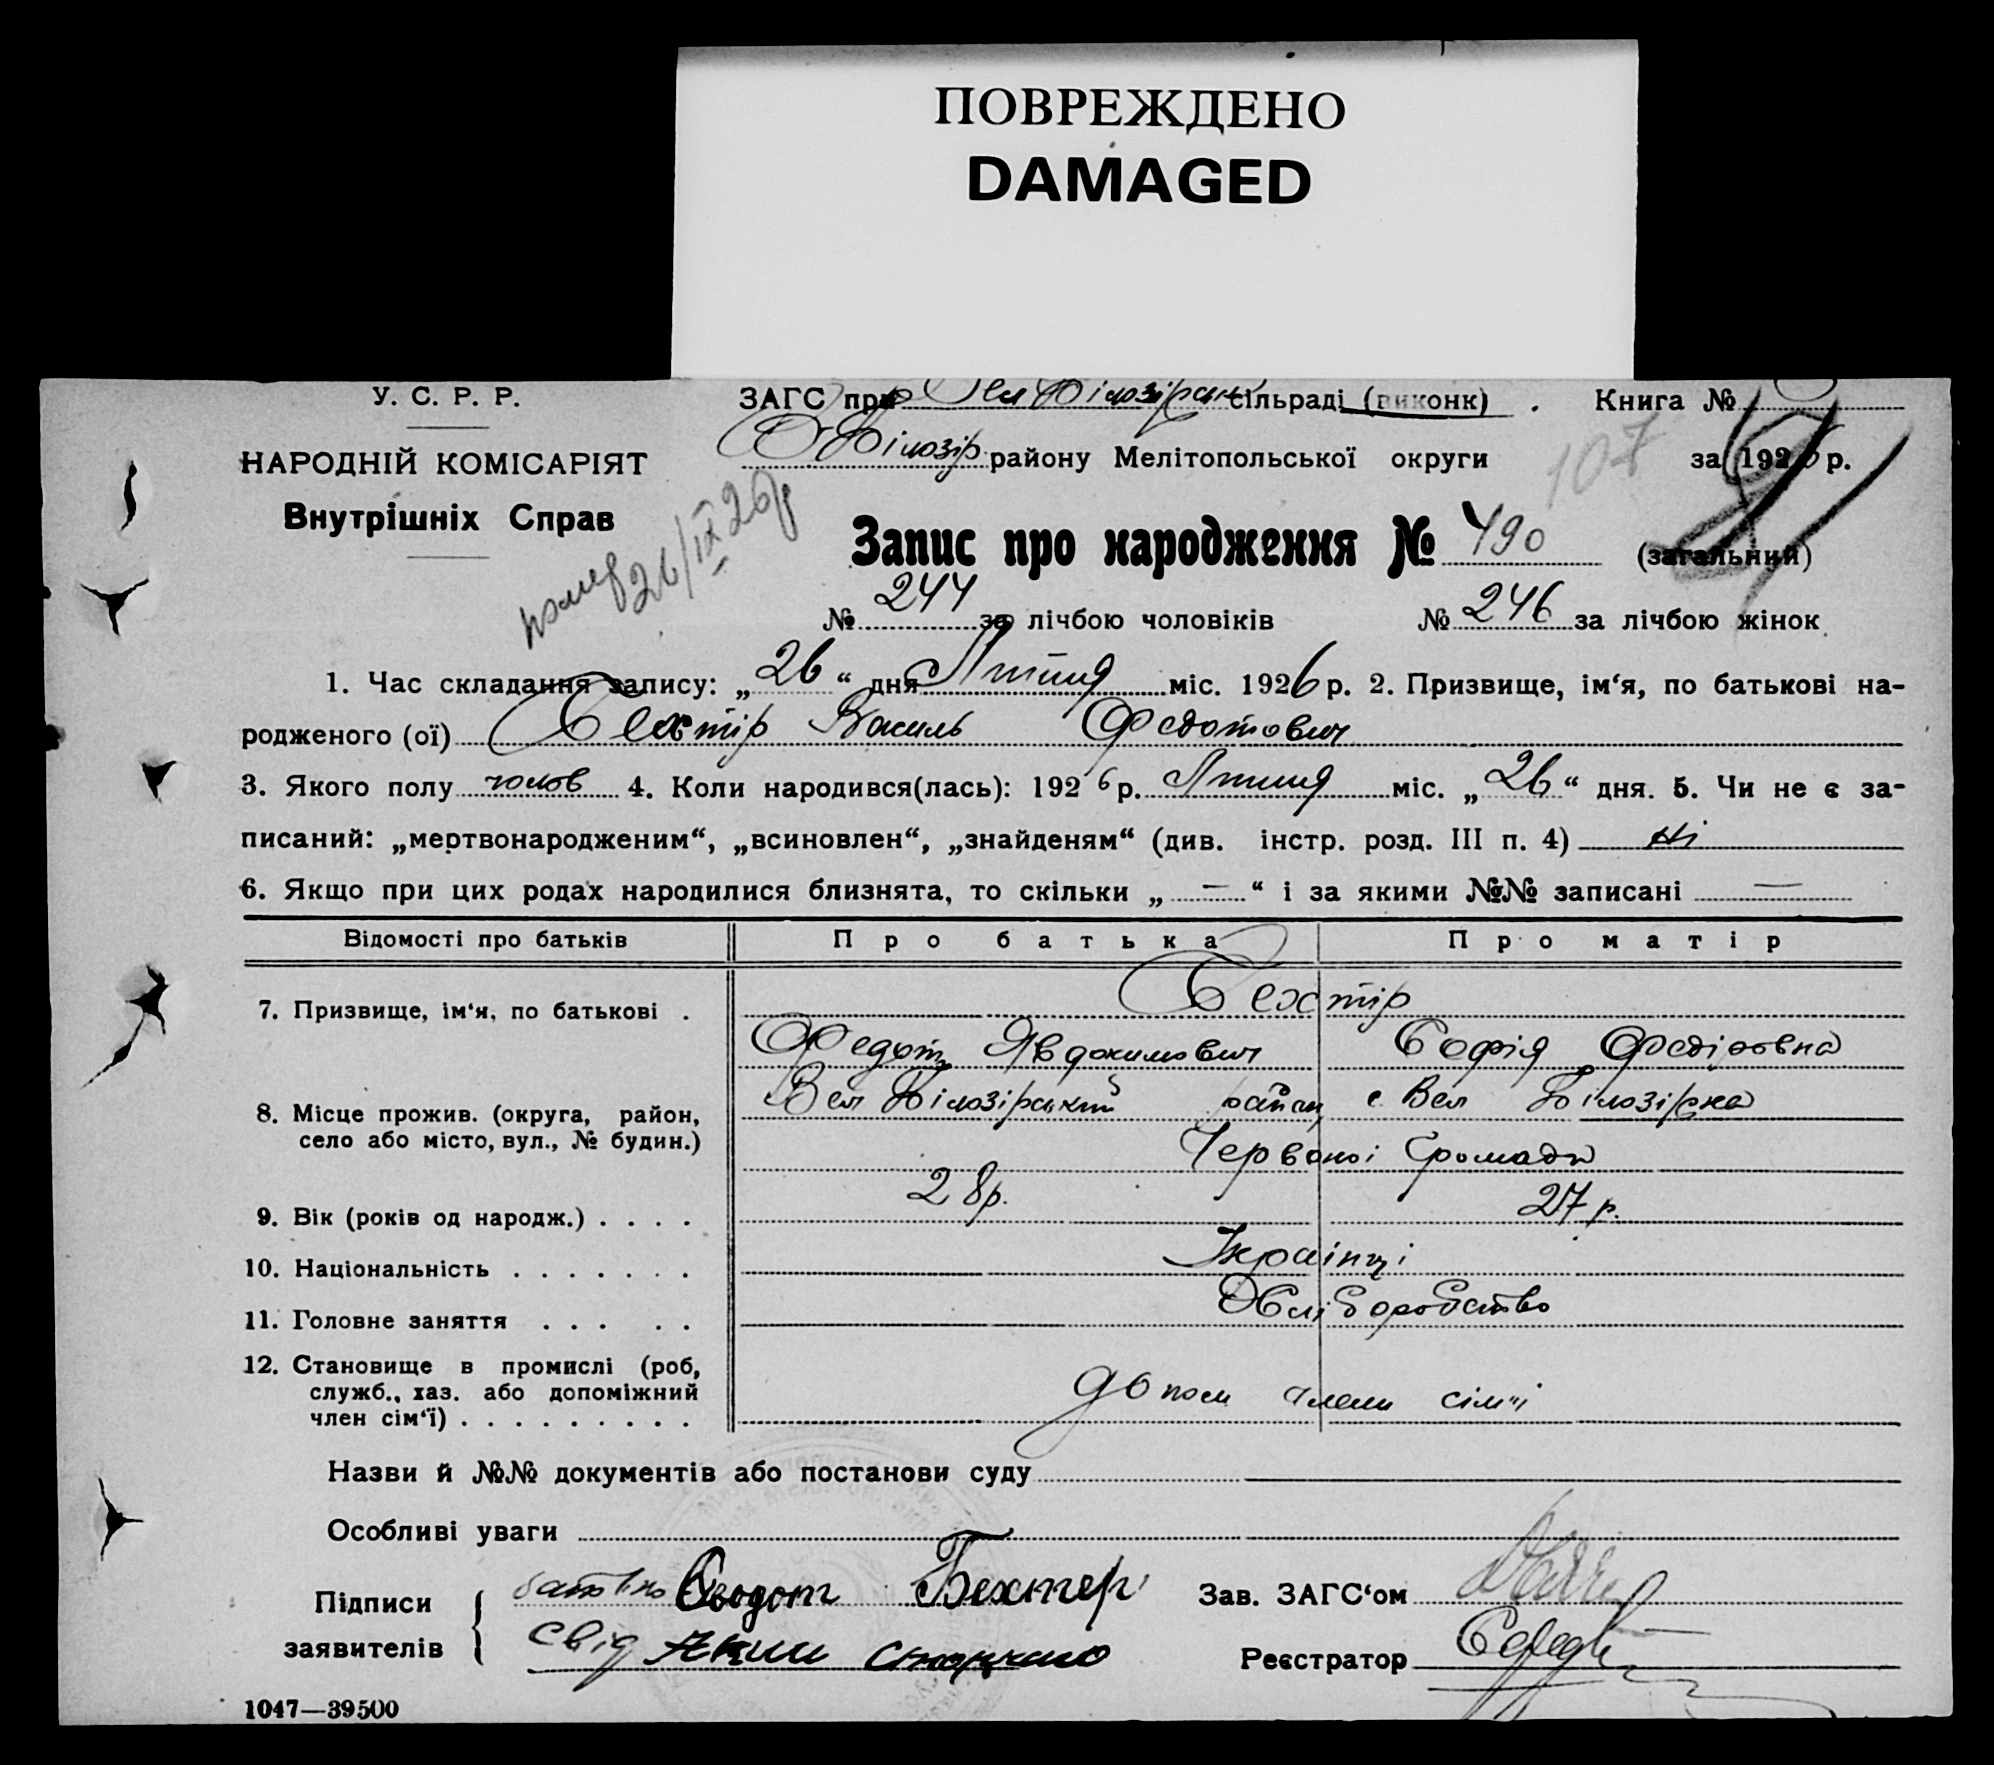 ПОВРЕЖДЕНО
DAMAGED
У. С. Р. Р.
ЗАГС при Вел Білозірській сільраді (виконк) . Книга №
В Білозір району Мелітопольської округи 107 за 1926 р.
НАРОДНІЙ КОМІСАРІЯТ
Внутрішніх Справ
помер 26/IX 26р
Запис про народження № 490 (загальний)
№ 244 за лічбою чоловіків № 246 за лічбою жінок
1. Час складання запису: „ 26 “ дня Липня міс. 1926 р. 2. Призвище, ім‘я, по батькові на-
родженого (ої) Бехтір Василь Федотович
3. Якого полу чолов 4. Коли народився(лась): 1926 р. Липня міс. „ 26 “ дня. 5. Чи не є за-
писаний: „мертвонародженим“, „всиновлен“, „знайденям“ (див. інстр. розд. III п. 4) ні
6. Якщо при цих родах народилися близнята, то скільки „ — “ і за якими №№ записані —
Відомості про батьків Про батька Про матір
7. Призвище, ім‘я, по батькові . Бехтір
Федот Явдокимович Софія Федіровна
8. Місце прожив. (округа, район, Вел Білозірський район, с Вел Білозірка
село або місто, вул., № будин.) Червоної Громади
9. Вік (років од народж.) . . . . 28р. 27 р.
10. Національність . . . . . . . Українці
11. Головне заняття . . . . . Хліборобство
12. Становище в промислі (роб,
служб., хаз. або допоміжний Допом члени сім'ї
член сім‘ї) . . . . . . . . .
Назви й №№ документів або постанови суду
Особливі уваги
Підписи Федот Бехтер Зав. ЗАГС‘ом
заявителів Свід Реєстратор
1047—39500